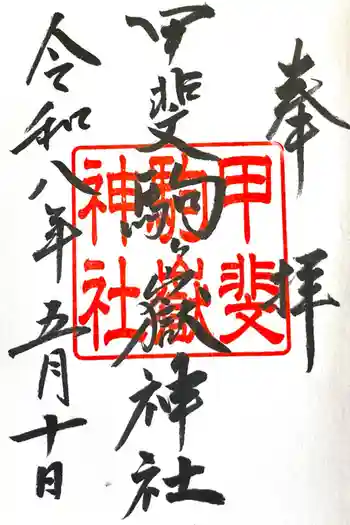 奉拝
甲斐駒ヶ嶽神社
甲斐
駒嶽
神社
令和八年五月十日